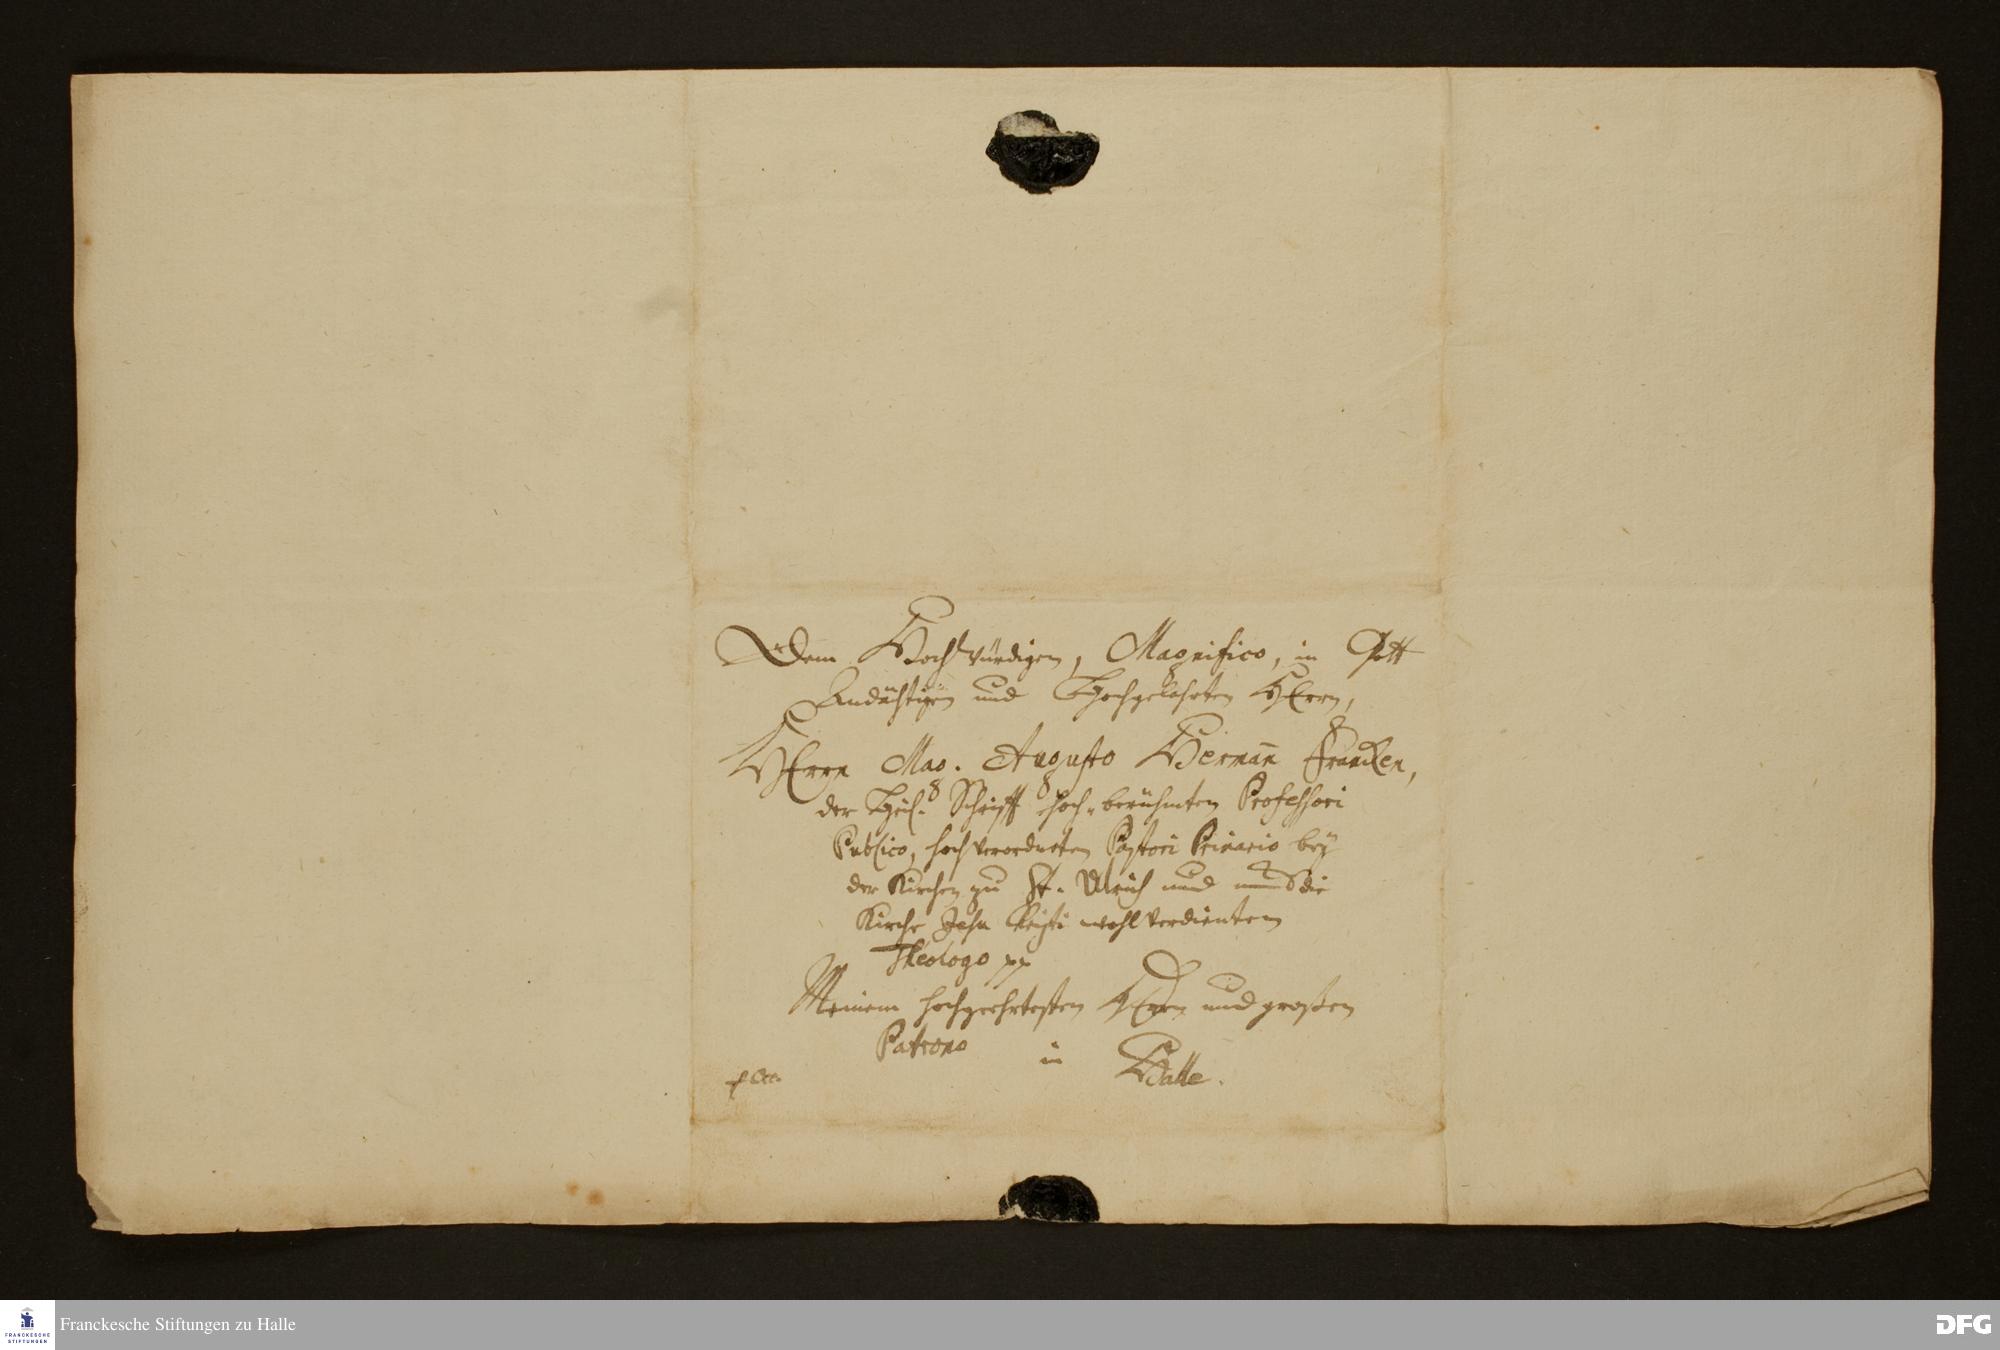 Dem Hochwürdigen, Magnifico, in Gott
Andächtigen und Hochgelahrten HErrn,
HErrn Mag. Augusto Herman̄ Francken,
der Heil. Schrifft hoch-berühmten Professori
Publico, hochverordneten Pastori Primario bey
der Kirchen zu St. Ulrich und um die
Kirche Jesu Christi wohlverdientem
Theologo pp
Meinem hochgeehrtesten HErrn und großen
Patrono in Halle.
Franckesche Stiftungen zu Halle
FRANCKESCHE
STIFTUNGEN
DFG